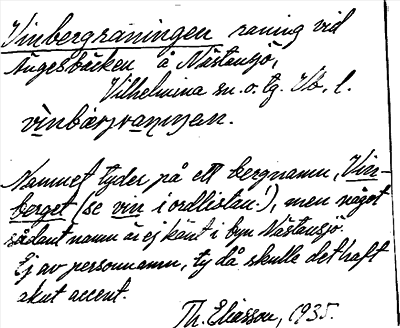 Vinbergraningen raning vid
Ångesbäcken å Nästansjö,
Vilhelmina sn. o. tg. Vb. l.
vinbærjranıŋen.
Namnet tyder på ett bergnamn, Vin-
berget (se vin i ordlistan!), men något
sådant namn är ej känt i byn Nästansjö.
Ej av personnamn, ty då skulle det haft
akut accent.
Th. Eliasson, 1935.